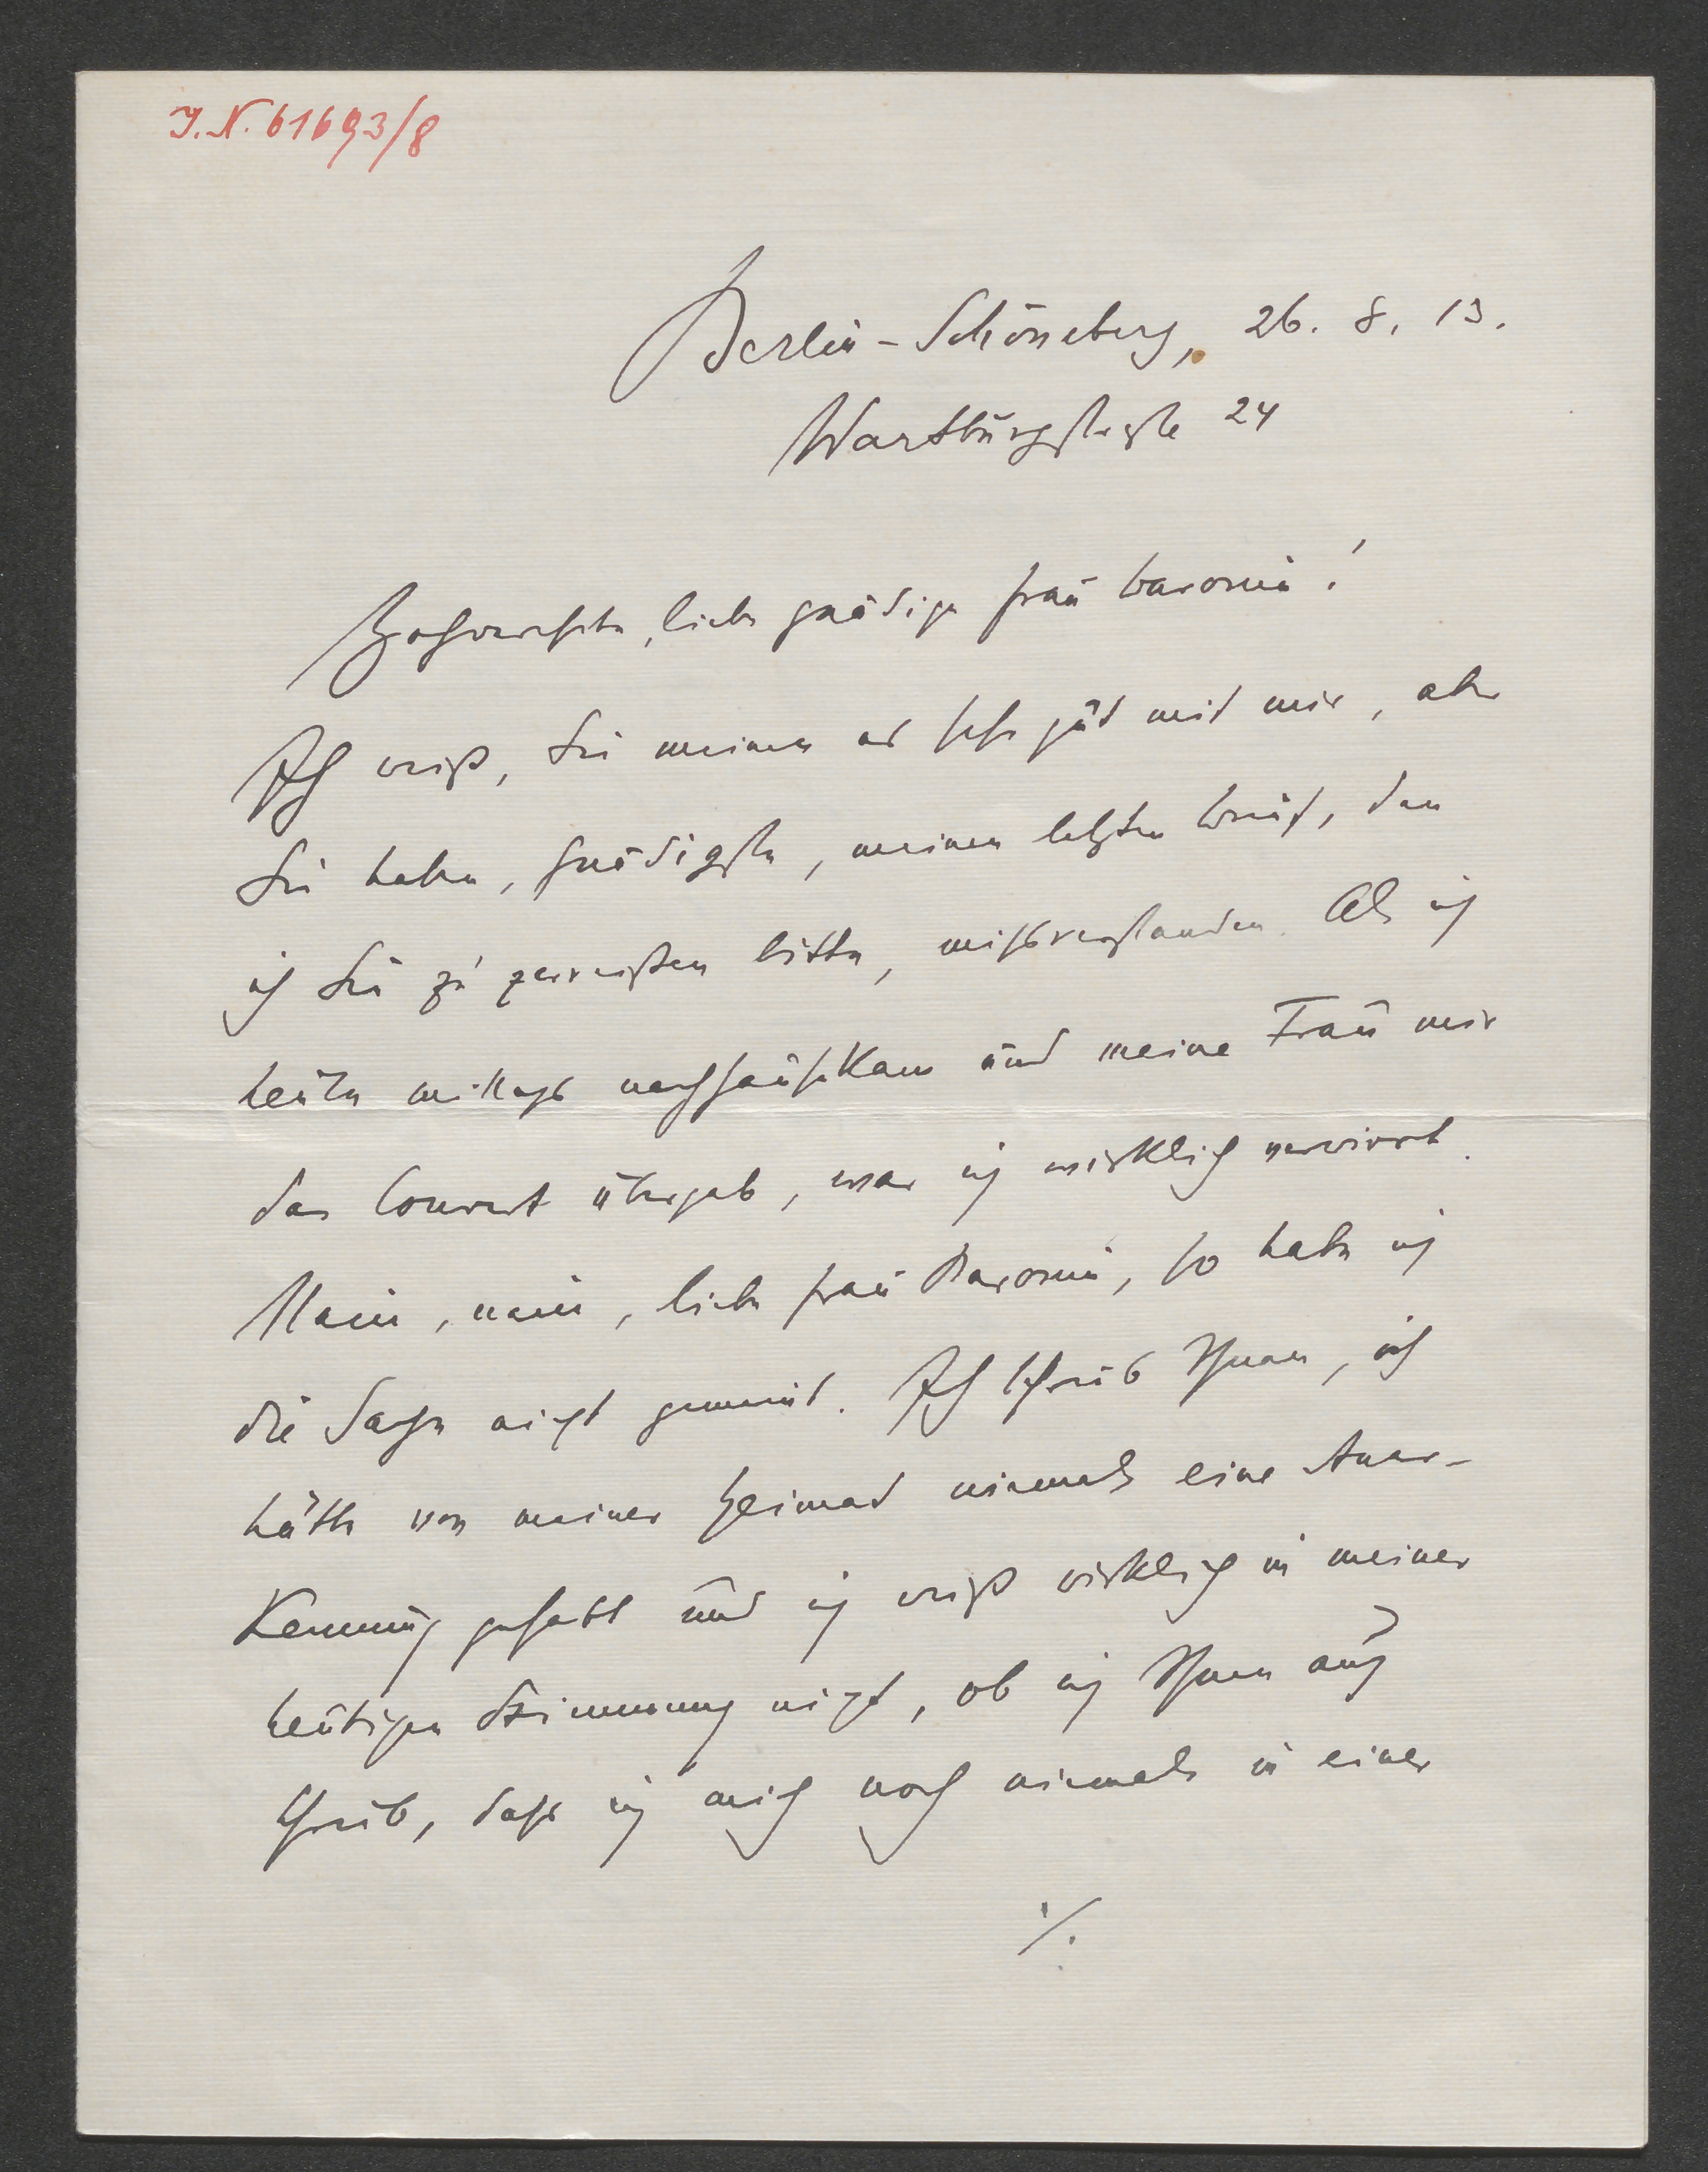 I.N. 61693/8
Berlin-Schöneberg, 26. 8. 13.
Wartburgstraße 24
Hochverehrte, liebe gnädige Frau Baronin!
Ich weiß, Sie meinen es sehr gut mit mir, aber
Sie haben, Gnädigste, meinen letzten Brief, den
ich Sie zu zerreißen bitte, missverstanden. Als ich
heute mittags nachhause kam und meine Frau mir
das Couvert übergab, war ich wirklich verwirrt.
Nein, nein, liebe Frau Baronin, so habe ich
die Sache nicht gemeint. Ich schrieb Ihnen, ich
hätte von meiner Heimat niemals eine Aner-
kennung gehabt und ich weiß wirklich in meiner
heutigen Stimmung nicht, ob ich Ihnen auch
schrieb, dass ich mich noch niemals in einer
./.